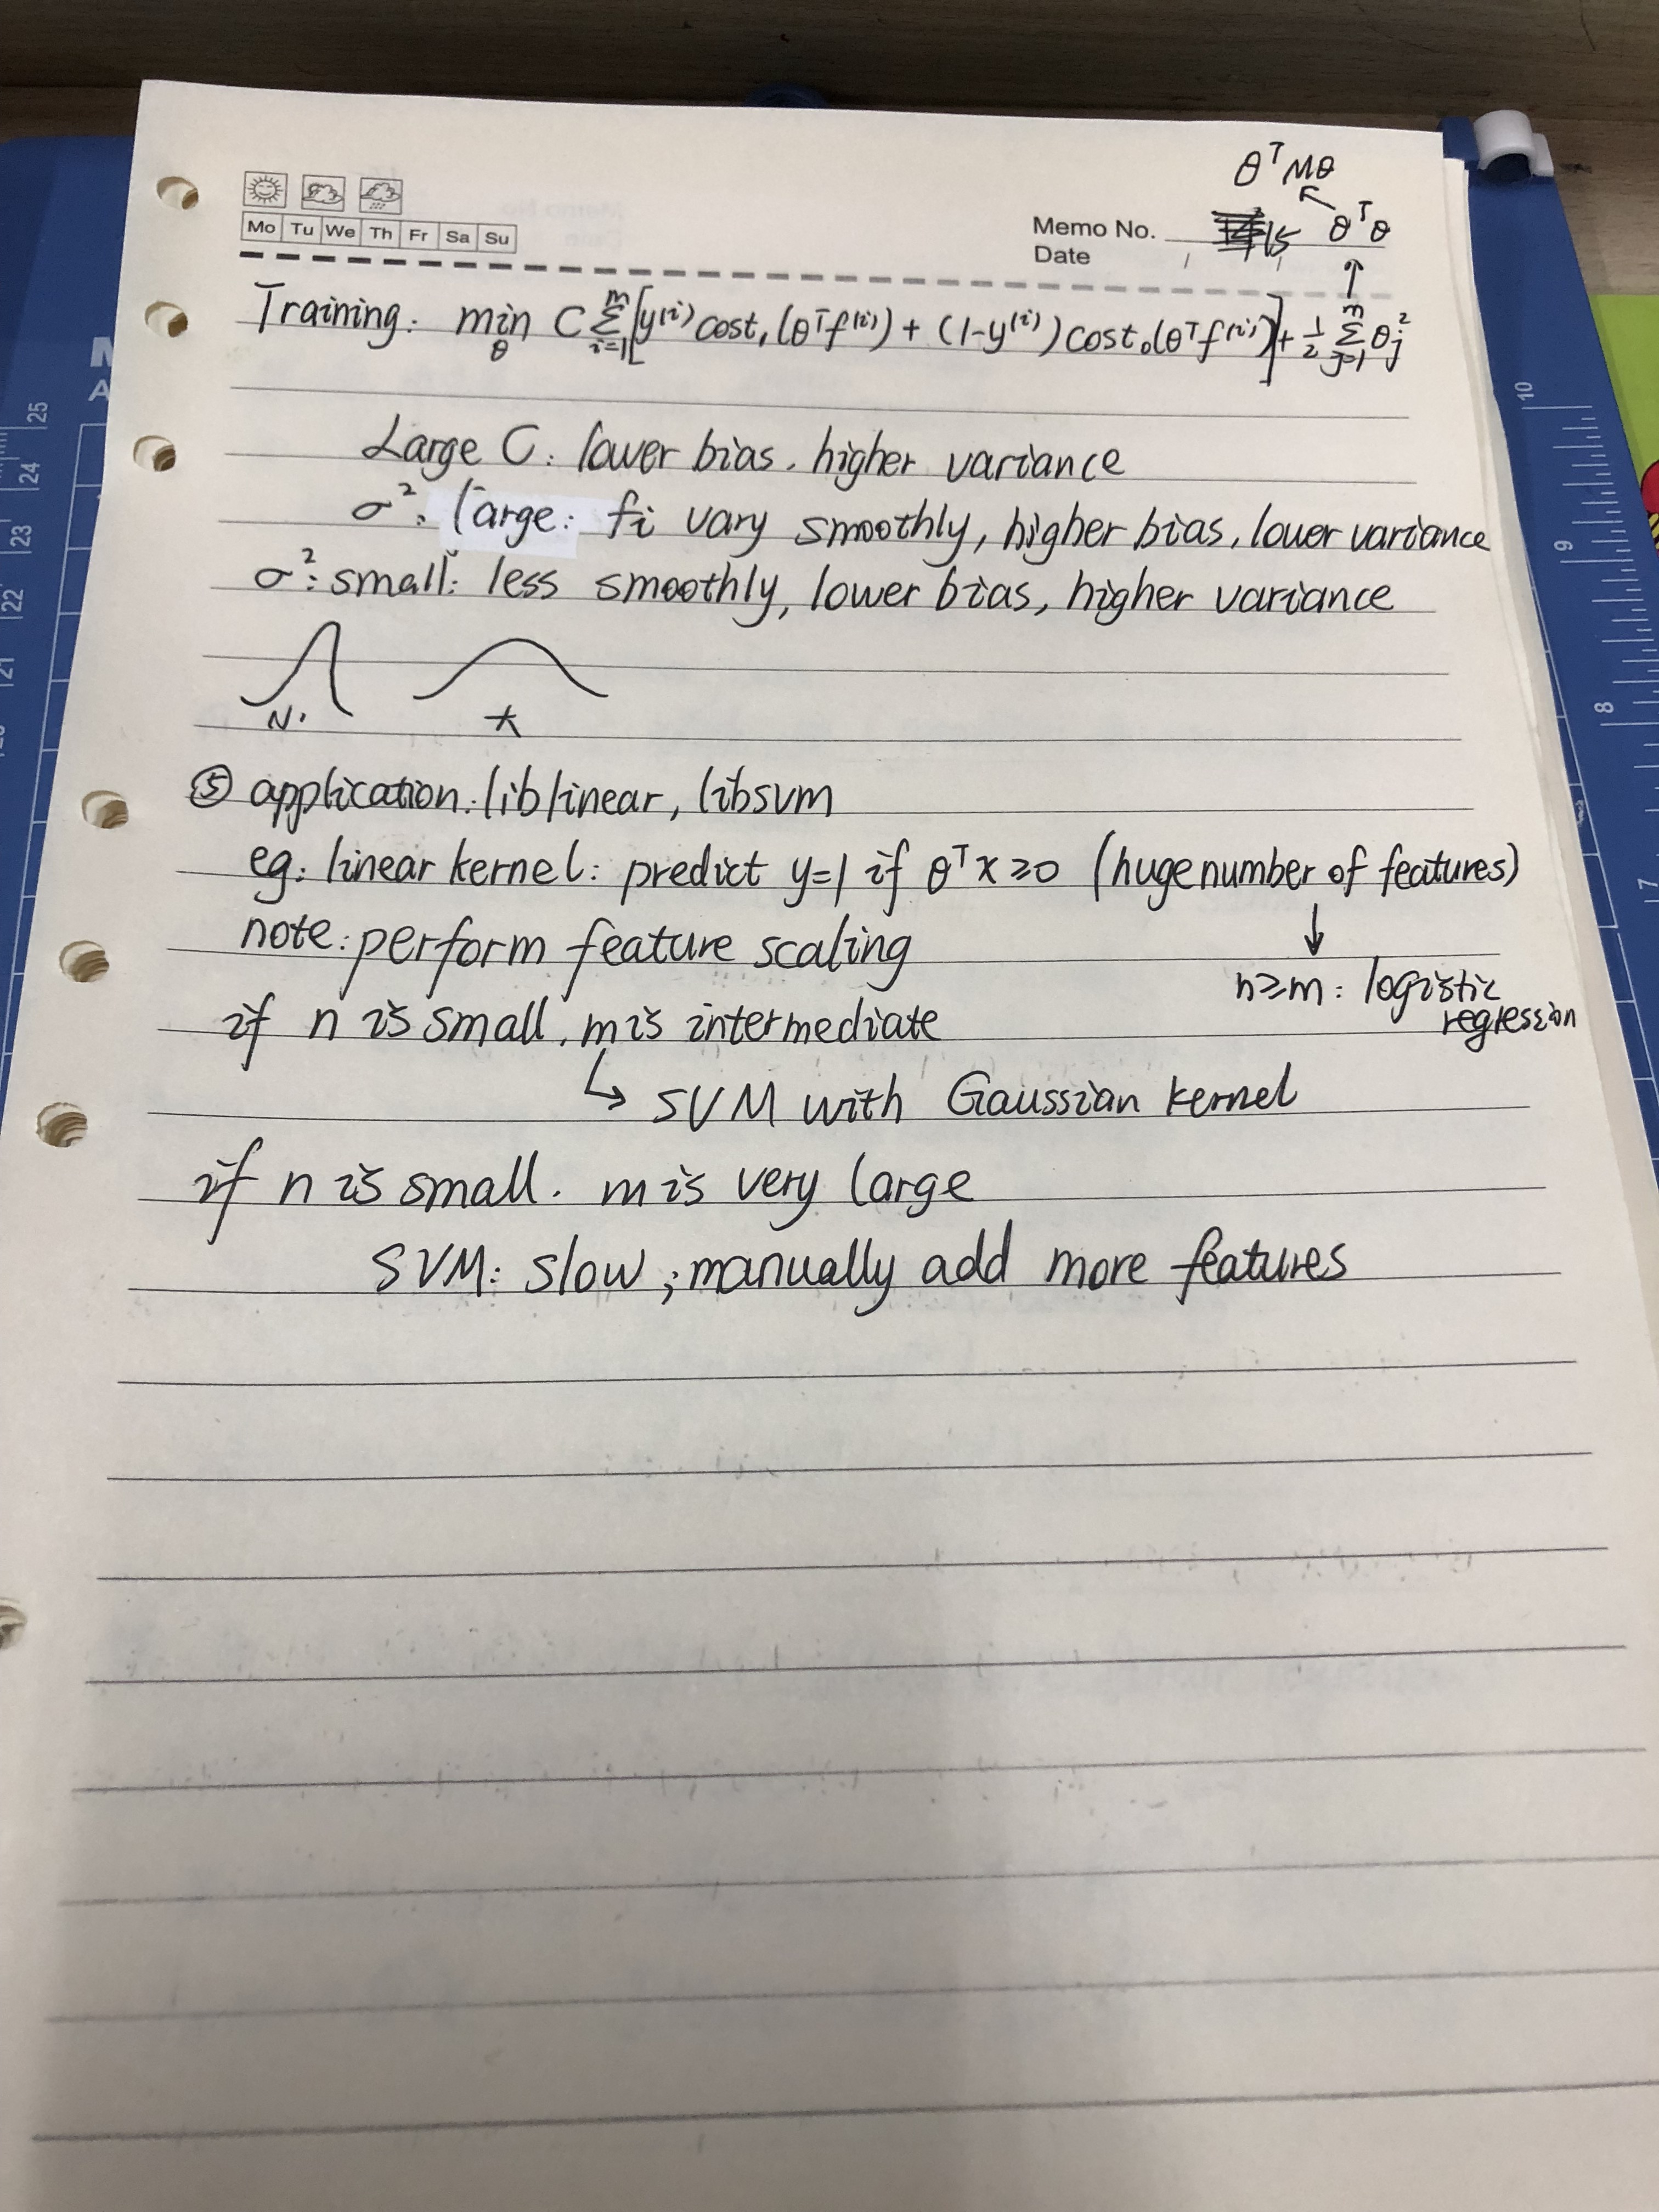 θᵀMθ
Mo Tu We Th Fr Sa Su
Memo No. 15
θᵀθ
Date / /
Training: min_θ C Σ_{i=1}^{m} [y⁽ⁱ⁾ cost₁(θᵀf⁽ⁱ⁾) + (1-y⁽ⁱ⁾) cost₀(θᵀf⁽ⁱ⁾)] + 1/2 Σ_{j=1}^{m} θⱼ²
Large C: lower bias. higher variance
σ²: large: fi vary smoothly, higher bias, lower variance
σ²: small: less smoothly, lower bias, higher variance
小 大
⑤ application: liblinear, libsvm
eg: linear kernel: predict y=1 if θᵀx≥0 (huge number of features)
↓
note: perform feature scaling
n≥m: logistic
regression
if n is small, m is intermediate
↳ SVM with Gaussian kernel
if n is small. m is very large
SVM: slow; manually add more features
25
24
23
22
21
10
9
8
7